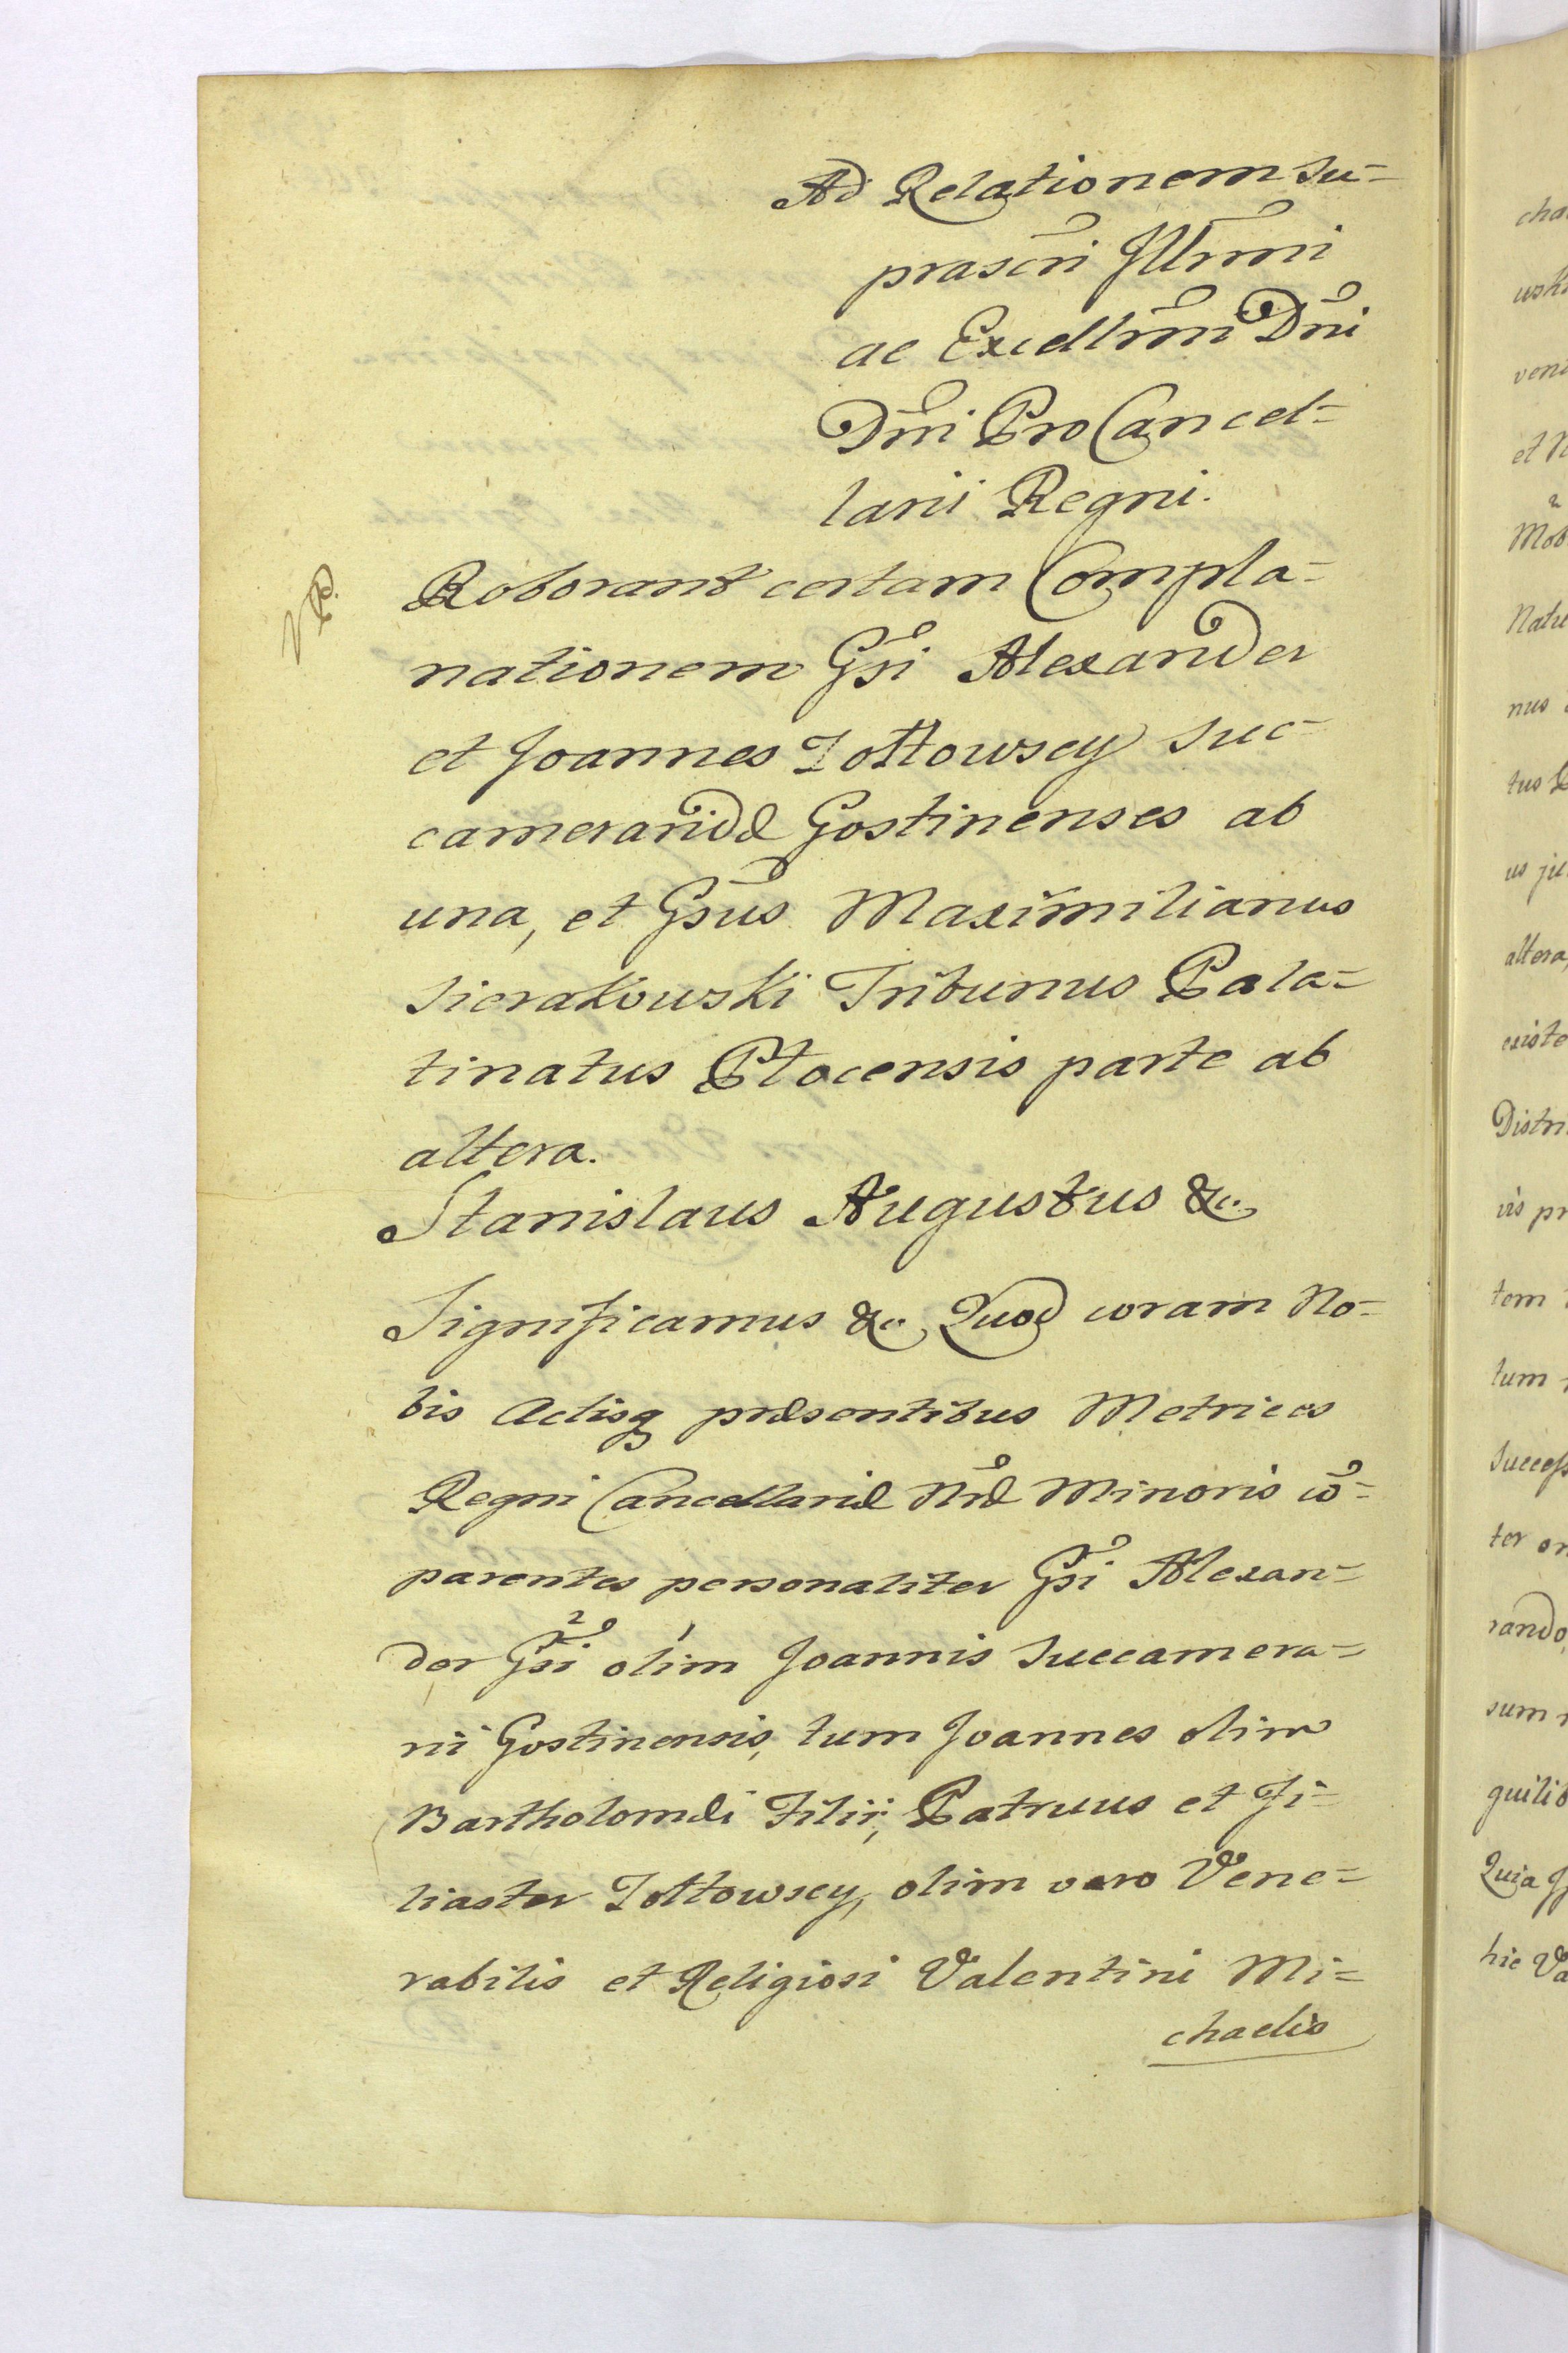 Ad Relationem su=
prascri Illrmi
ac Excellrmi Dni
Dni Pro Cancel=
larii Regni.
Roborant certam Compla=
nationem Gsi Alexander
et Joannes Żółtowscy Suc=
cameraridæ Gostinenses ab
una, et Gsus Maximilianus
Sierakowski Tribunus Pala=
tinatus Plocensis parte ab
altera.
Stanislaus Augustus &c.
Significamus &c. Quod coram No=
bis Actisq præsentibus Metrices
Regni Cancellariæ Nræ Minoris cō=
parentes personaliter Gsi Alexan=
der Gsi olim Joannis Succamera=
rii Gostinensis, tum Joannes olim
Bartholomæi Filii, Patruus et Fi=
liaster Żółtowscy, olim vero Vene=
rabilis et Religiosi Valentini Mi=
chaelis
cha
uski
et N
Mob
Natu
nus
tus
altera,
existe
Distri
vis pr
tem
tum
Success
ter
rando,
sum
quilib
Quia
hic Va